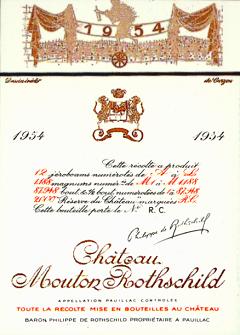 1954
Dessin inédit de Carzou
1954 1954
Cette récolte a produit
12 jéroboams numérotés de A à L
1.188 magnums numér.tés de M1 à M1.188
87.948 bout. & ½ bout. numérotées de 1 à 87.948
2000 "Réserve du Château" marquées R.C.
Cette bouteille porte le N° R.C.
Philippe de Rothschild
Château
Mouton Rothschild
APPELLATION PAUILLAC CONTROLÉE
TOUTE LA RÉCOLTE MISE EN BOUTEILLES AU CHÂTEAU
BARON PHILIPPE DE ROTHSCHILD PROPRIÉTAIRE A PAUILLAC